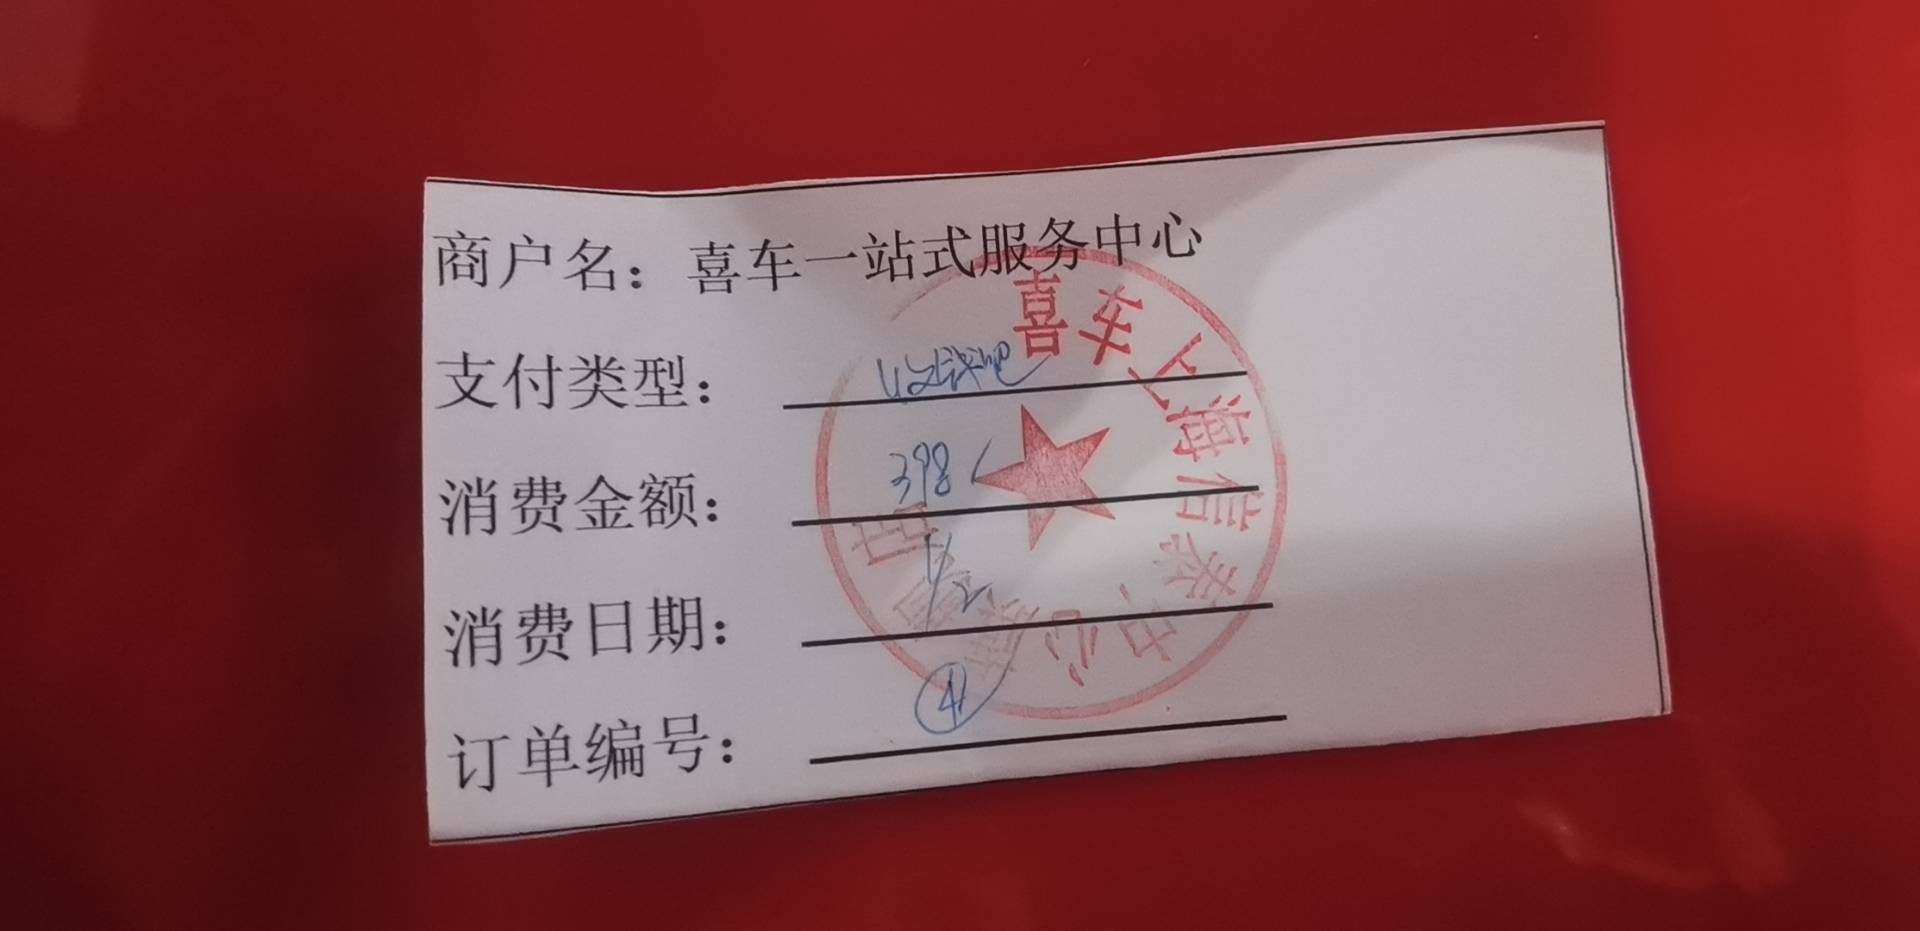 商户名：喜车一站式服务中心
支付类型：收钱吧
消费金额：398
消费日期：1/2
订单编号：4
喜车上海信泰中心